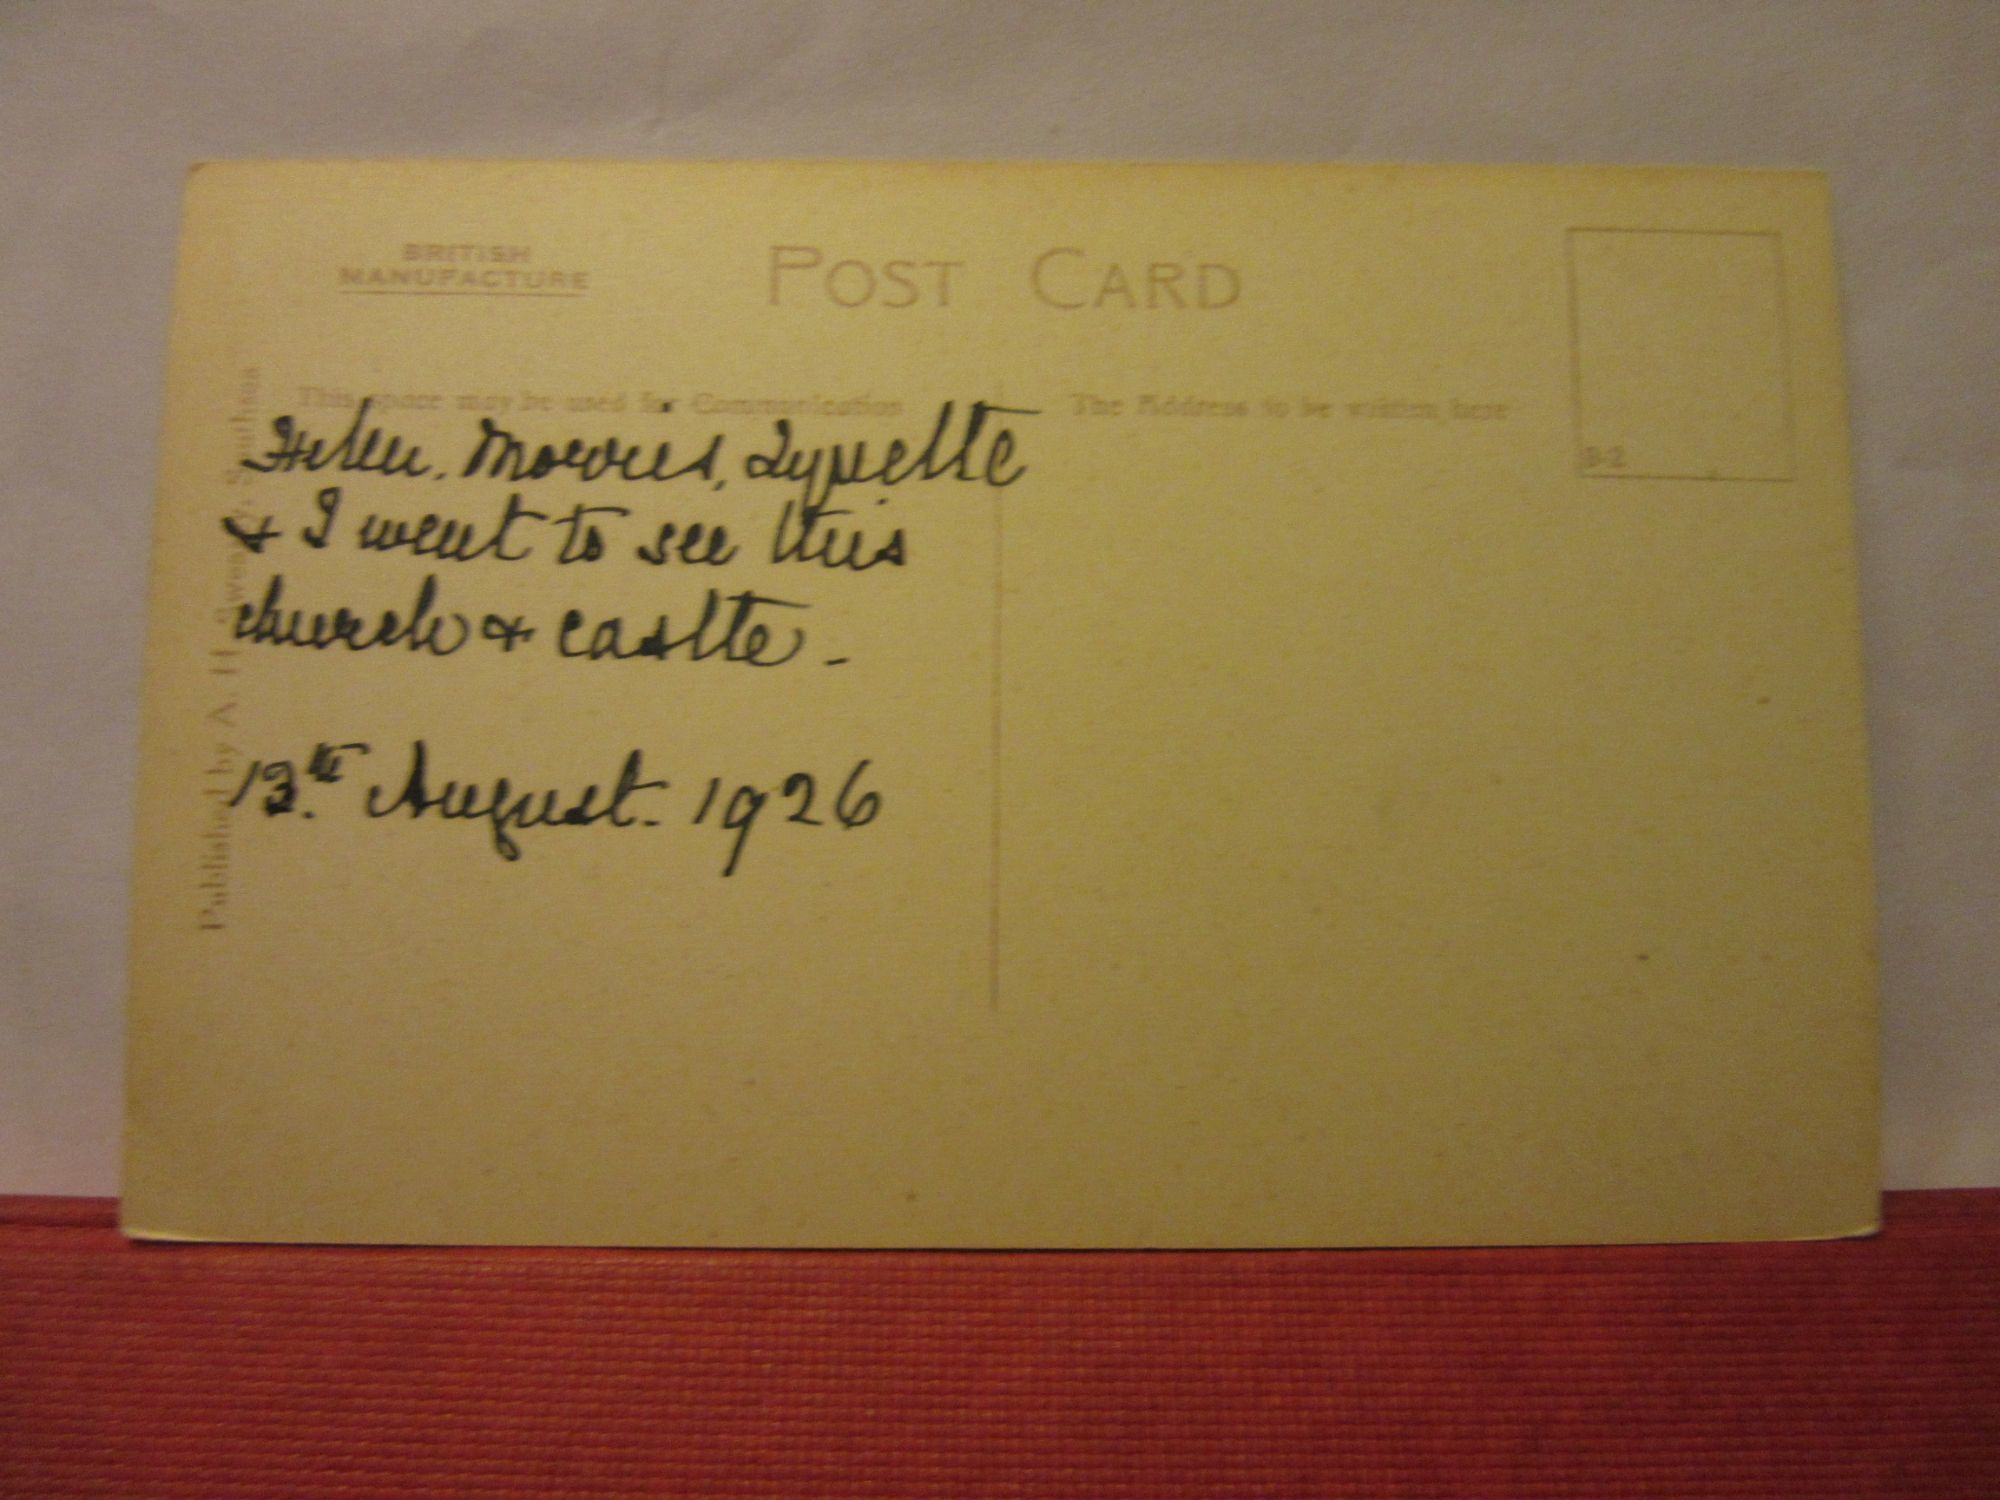 BRITISH
MANUFACTURE
POST CARD
This space may be used for Communication
The Address to be written here
B-2
Helen, Morris, Lynette
& I went to see this
church & castle -
13th August. 1926
Published by A. H. Southsea